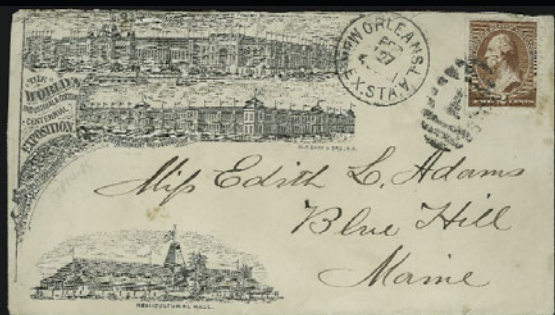 THE
WORLD'S
INDUSTRIAL & COTTON
CENTENNIAL
EXPOSITION.
NEW ORLEANS, LA.
DEC
27
EX. STA.
Miss Edith L. Adams
Blue Hill
Maine
HORTICULTURAL HALL.